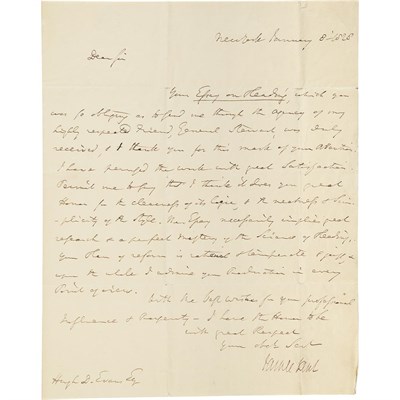 New York January 8th 1828
Dear Sir
Your Essay on Pleading, which you
was so obliging as to send me through the agency of my
highly respected Friend, General Stewart, was duly
received, & I thank you for this mark of your attention.
I have perused the work with great Satisfaction.
Permit me to say that I think it does you great
Honor for the clearness of its Logic, & the neatness & Sim-
plicity of the Style. The Essay necessarily implies great
research & a perfect mastery of the Science of Pleading.
Your Plan of reform is rational & temperate &
upon the whole I admire your Production in every
Point of view.
With the best wishes for your professional
Influence & Prosperity - I have the Honor to be
with great Respect
Your obdt Servt
James Kent
Hugh D. Evans Esq